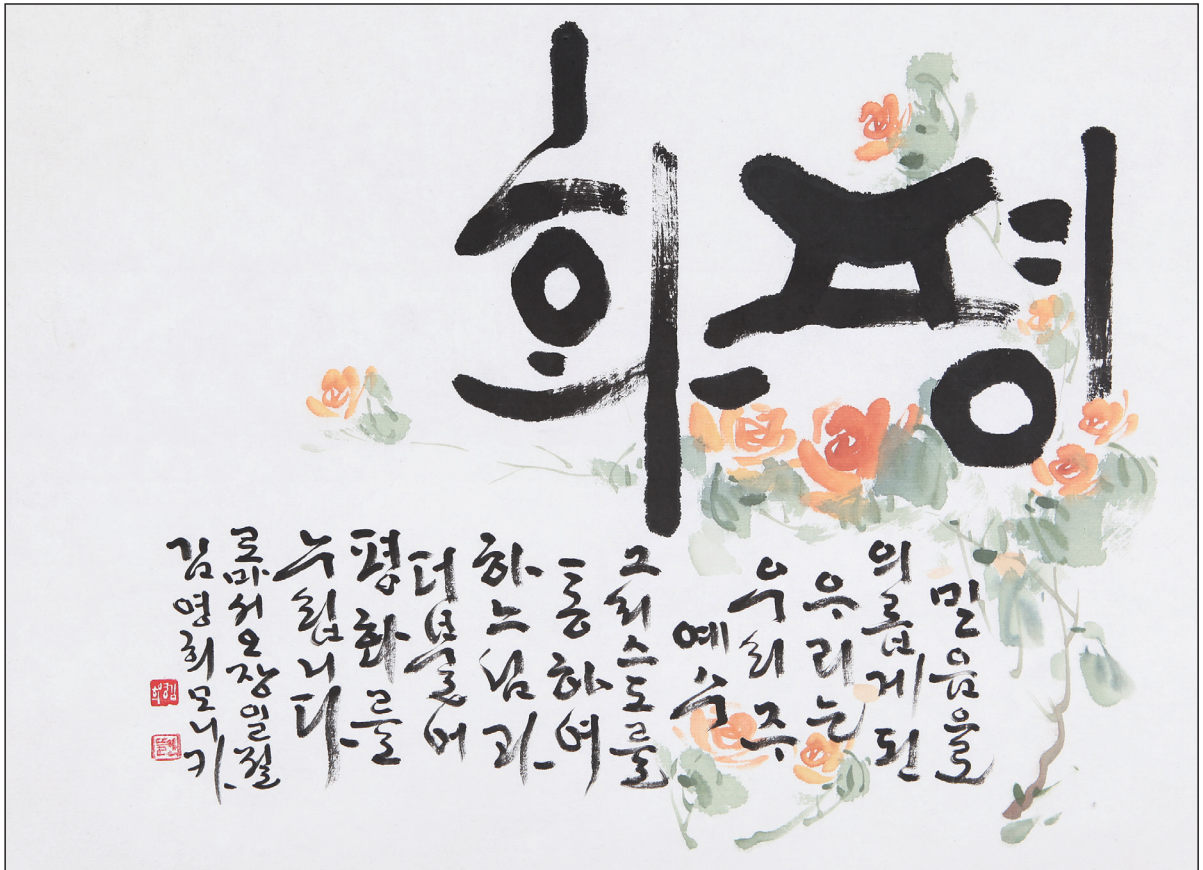 평화
믿음으로
의롭게 된
우리는
우리 주
예수
그리스도를
통하여
하느님과
더불어
평화를
누립니다
로마서 오장 일절
김영희 모니카